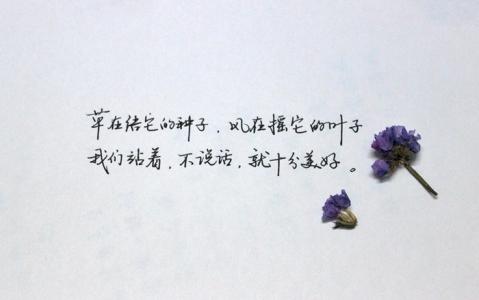 草在结它的种子，风在摇它的叶子
我们站着，不说话，就十分美好。